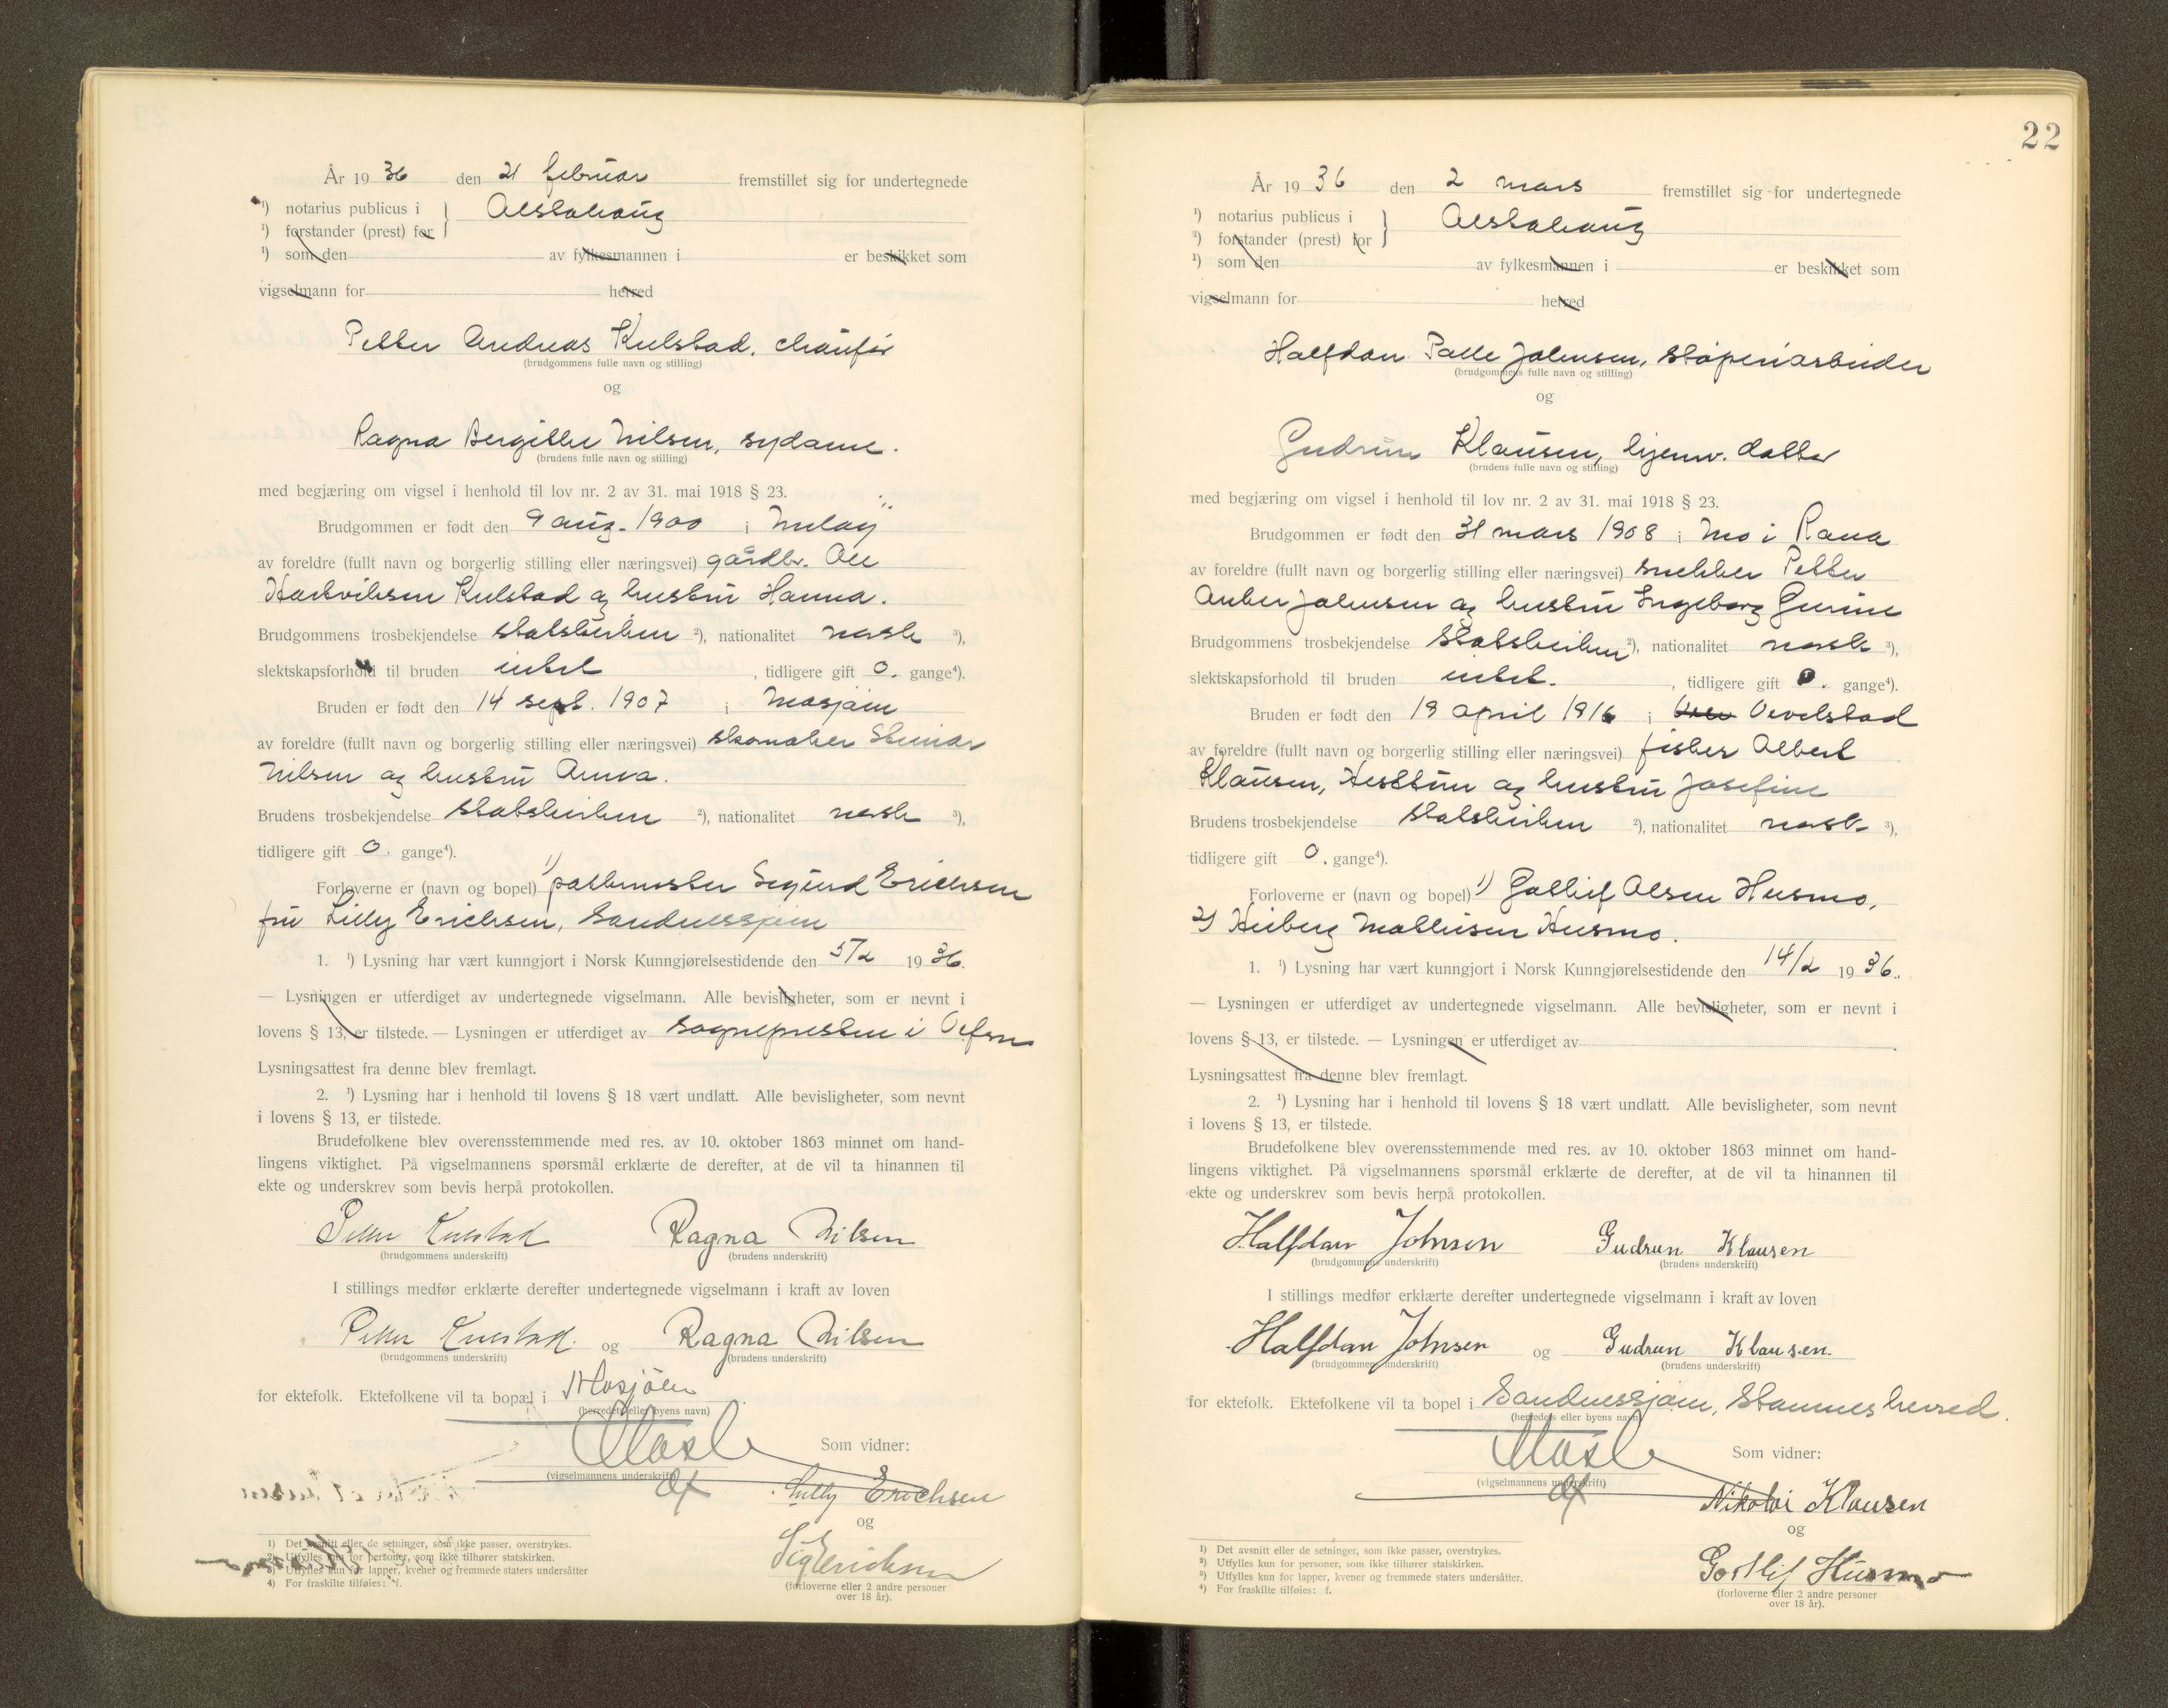 År 1936 den 21 februar fremstillet sig for undertegnede
¹) notarius publicus i } Alstahaug
¹) forstander (prest) for
¹) som den av fylkesmannen i er beskikket som
vigselmann for herred
Petter Andreas Kulstad, chaufør
(brudgommens fulle navn og stilling)
og
Ragna Bergitte Nilsen, sydame.
(brudens fulle navn og stilling)
med begjæring om vigsel i henhold til lov nr. 2 av 31. mai 1918 § 23.
Brudgommen er født den 9 aug. 1900 i
av foreldre (fullt navn og borgerlig stilling eller næringsvei) gårdbr. Ole
Hartviksen Kulstad og hustru Hanna.
Brudgommens trosbekjendelse statskirken ²), nationalitet norsk ³),
slektskapsforhold til bruden intet , tidligere gift 0. gange⁴).
Bruden er født den 14 sept. 1907 i Mosjøen
av foreldre (fullt navn og borgerlig stilling eller næringsvei) skomaker Steinar
Nilsen og hustru Anna.
Brudens trosbekjendelse statskirken ²), nationalitet norsk ³),
tidligere gift 0. gange⁴).
Forloverne er (navn og bopel) ¹) postmester Sigurd Erichsen
fru Lilly Erichsen, Sandnessjøen
1. ¹) Lysning har vært kunngjort i Norsk Kunngjørelsestidende den 5/2 1936.
— Lysningen er utferdiget av undertegnede vigselmann. Alle bevisligheter, som er nevnt i
lovens § 13, er tilstede. — Lysningen er utferdiget av sognepresten i Vefsn
Lysningsattest fra denne blev fremlagt.
2. ¹) Lysning har i henhold til lovens § 18 vært undlatt. Alle bevisligheter, som nevnt
i lovens § 13, er tilstede.
Brudefolkene blev overensstemmende med res. av 10. oktober 1863 minnet om hand-
lingens viktighet. På vigselmannens spørsmål erklærte de derefter, at de vil ta hinannen til
ekte og underskrev som bevis herpå protokollen.
Petter Kulstad Ragna Nilsen
(brudgommens underskrift) (brudens underskrift)
I stillings medfør erklærte derefter undertegnede vigselmann i kraft av loven
Petter Kulstad. og Ragna Nilsen
(brudgommens underskrift) (brudens underskrift)
for ektefolk. Ektefolkene vil ta bopæl i Mosjöen
(herredets eller byens navn)
Som vidner:
(vigselmannens underskrift)
Lilly Erichsen
og
Sig Erichsen
(forloverne eller 2 andre personer
over 18 år).
1) Det avsnitt eller de setninger, som ikke passer, overstrykes.
2) Utfylles kun for personer, som ikke tilhører statskirken.
3) Utfylles kun for lapper, kvener og fremmede staters undersåtter
4) For fraskilte tilføies: f.
22
År 1936 den 2 mars fremstillet sig for undertegnede
¹) notarius publicus i } Alstahaug
¹) forstander (prest) for
¹) som den av fylkesmannen i er beskikket som
vigselmann for herred
Halfdan Palle Johnsen, støperiarbeider
(brudgommens fulle navn og stilling)
og
Gudrun Klausen, hjemv. datter
(brudens fulle navn og stilling)
med begjæring om vigsel i henhold til lov nr. 2 av 31. mai 1918 § 23.
Brudgommen er født den 31 mars 1908 i Mo i Rana
av foreldre (fullt navn og borgerlig stilling eller næringsvei) snekker Petter
Anker Johnsen og hustru Ingeborg Gurine
Brudgommens trosbekjendelse statskirken ²), nationalitet norsk ³),
slektskapsforhold til bruden intet. , tidligere gift 0. gange⁴).
Bruden er født den 19 april 1916 i Vevelstad
av foreldre (fullt navn og borgerlig stilling eller næringsvei) fisker Albert
Klausen, Hesttun og hustru Josefine
Brudens trosbekjendelse statskirken ²), nationalitet norsk ³),
tidligere gift 0. gange⁴).
Forloverne er (navn og bopel) ¹) Gotlif Olsen Husmo,
2) Heiberg Mathisen Husmo.
1. ¹) Lysning har vært kunngjort i Norsk Kunngjørelsestidende den 14/2 1936.
— Lysningen er utferdiget av undertegnede vigselmann. Alle bevisligheter, som er nevnt i
lovens § 13, er tilstede. — Lysningen er utferdiget av .
Lysningsattest fra denne blev fremlagt.
2. ¹) Lysning har i henhold til lovens § 18 vært undlatt. Alle bevisligheter, som nevnt
i lovens § 13, er tilstede.
Brudefolkene blev overensstemmende med res. av 10. oktober 1863 minnet om hand-
lingens viktighet. På vigselmannens spørsmål erklærte de derefter, at de vil ta hinannen til
ekte og underskrev som bevis herpå protokollen.
Halfdan Johnsen Gudrun Klausen
(brudgommens underskrift) (brudens underskrift)
I stillings medfør erklærte derefter undertegnede vigselmann i kraft av loven
Halfdan Johnsen og Gudrun Klausen.
(brudgommens underskrift) (brudens underskrift)
for ektefolk. Ektefolkene vil ta bopel i Sandnessjøen, Stamnes herred.
(herredets eller byens navn)
Som vidner:
(vigselmannens underskrift)
Nikolai Klausen
og
Gotlif Husmo
(forloverne eller 2 andre personer
over 18 år).
¹) Det avsnitt eller de setninger, som ikke passer, overstrykes.
²) Utfylles kun for personer, som ikke tilhører statskirken.
³) Utfylles kun for lapper, kvener og fremmede staters undersåtter.
⁴) For fraskilte tilføies: f.